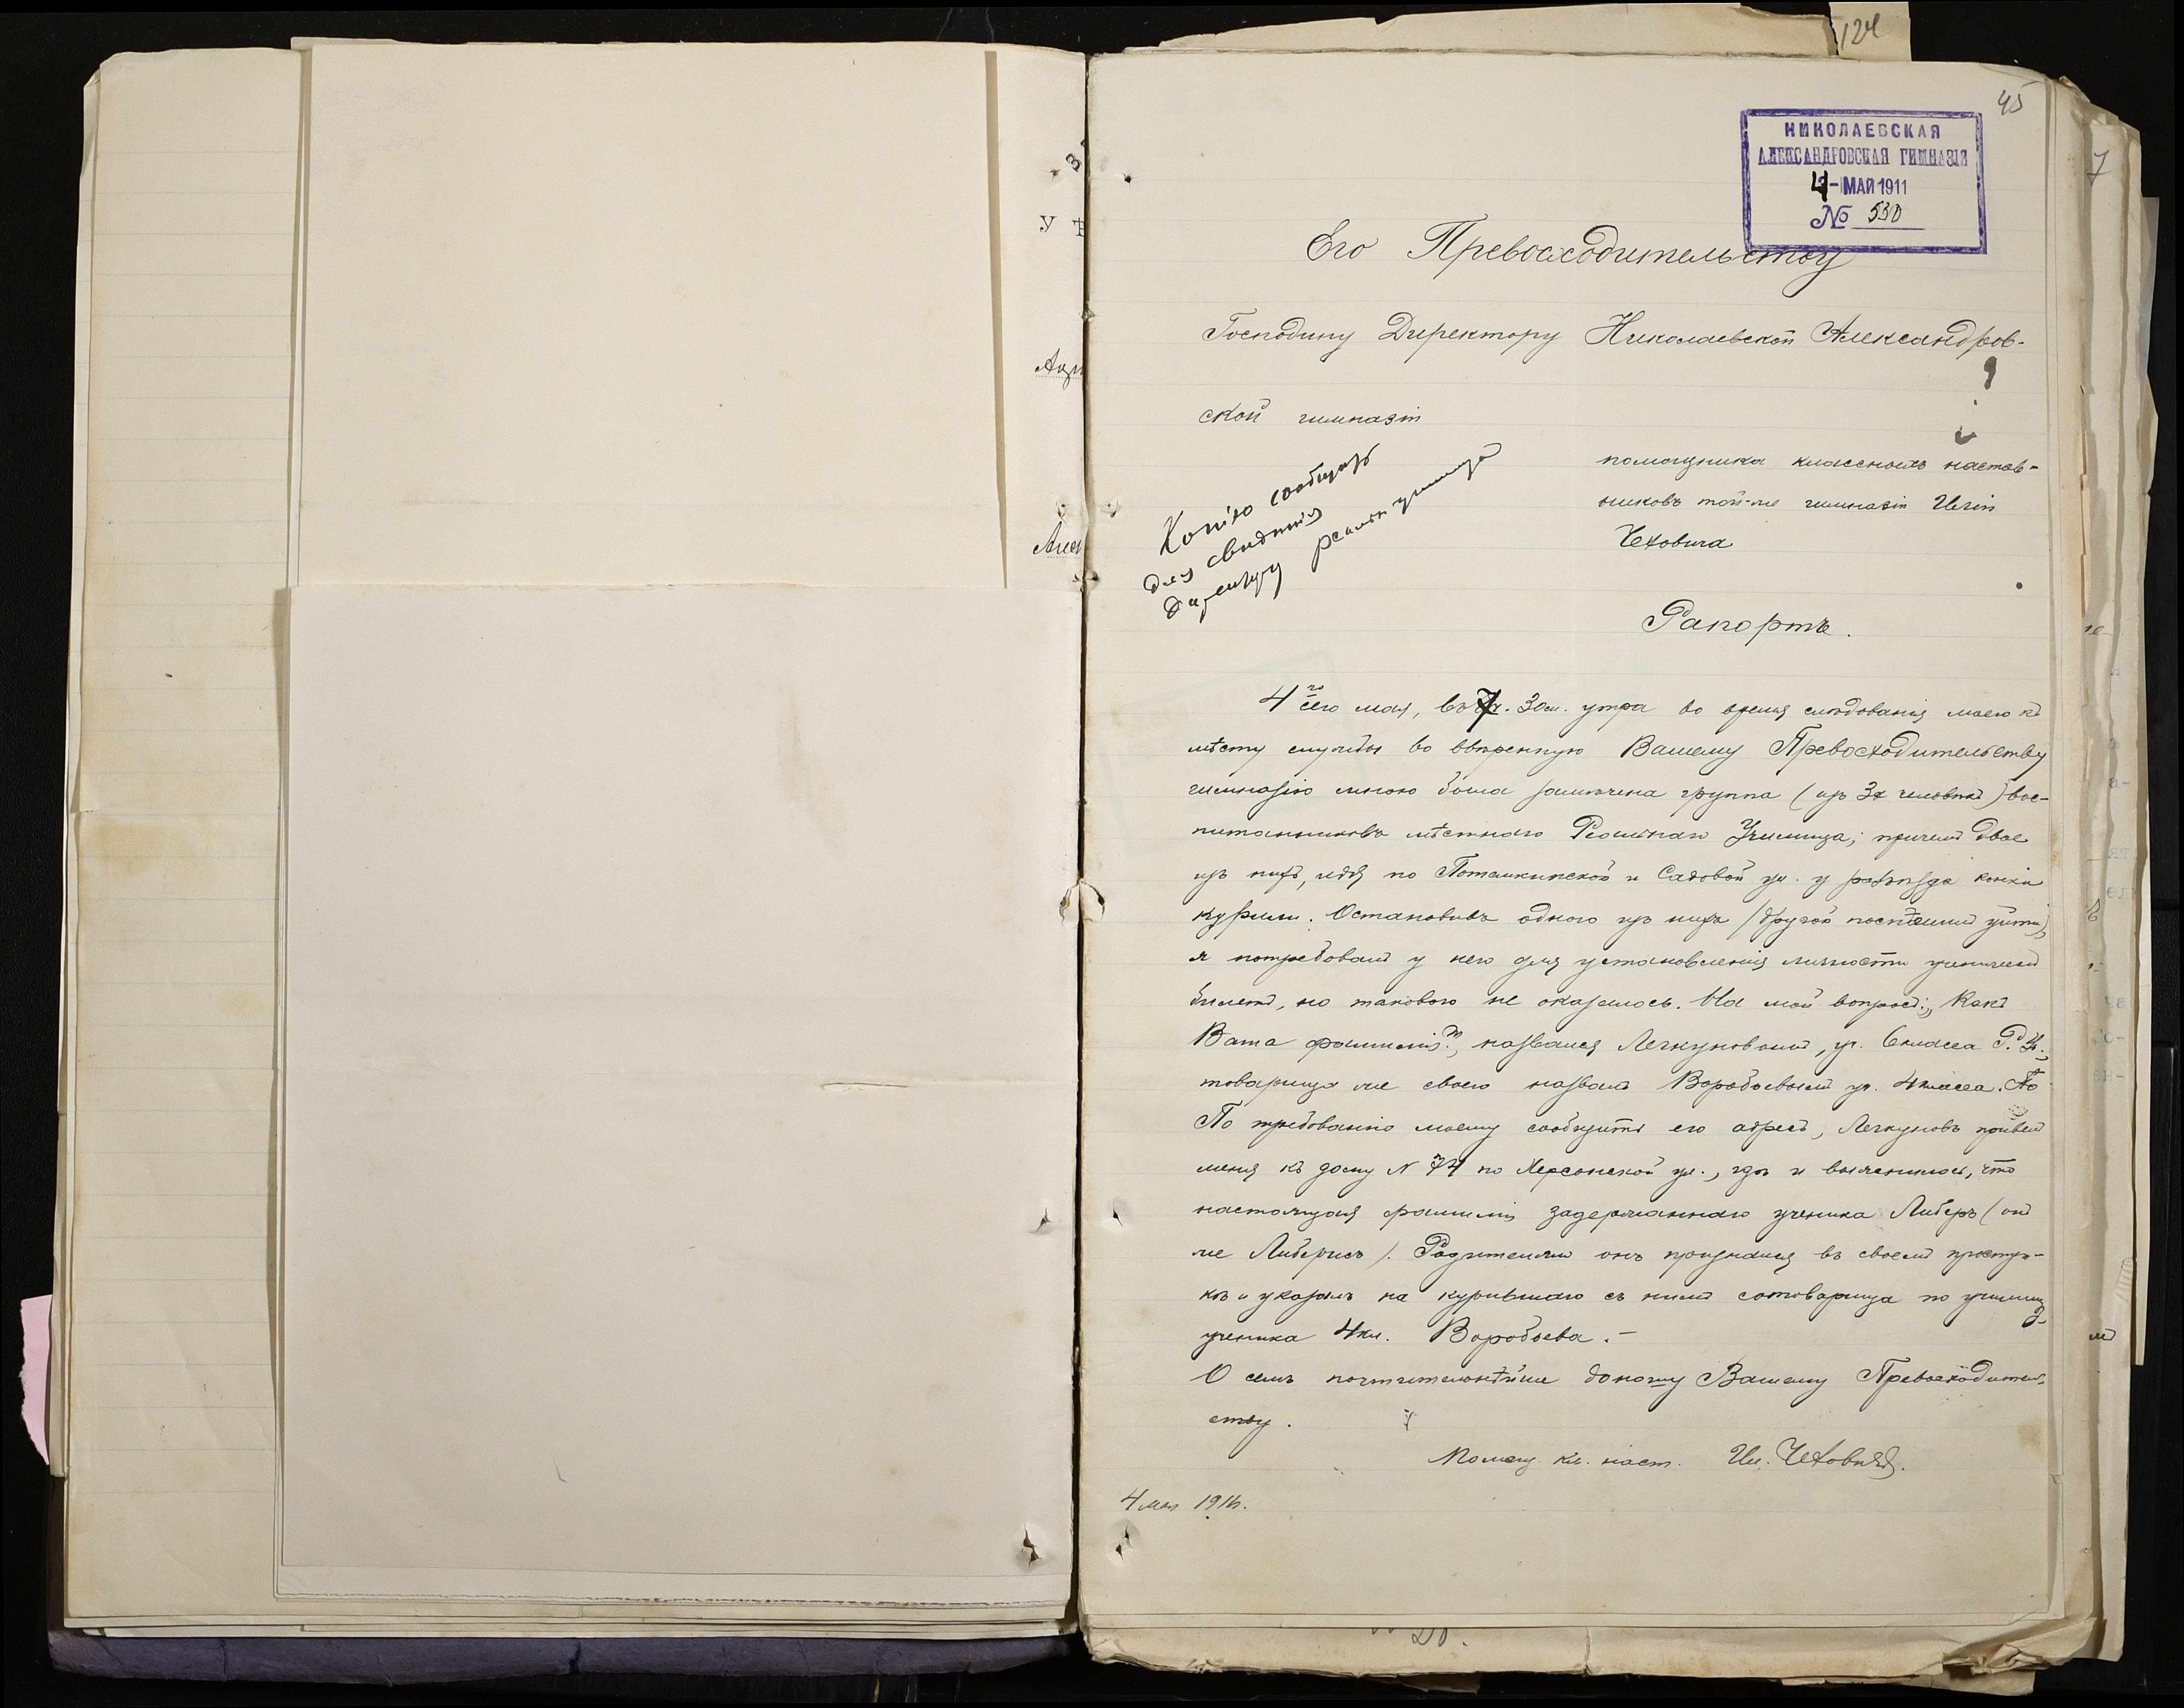 124
45
НИКОЛАЕВСКАЯ
АЛЕКСАНДРОВСКАЯ ГИМНАЗІЯ
4 - МАЯ 1911
№ 530
Его Превосходительству
Господину Директору Николаевской Александров-
ской гимназіи
помощника классныхъ настав-
никовъ той-же гимназіи Иліи
Чеховича
Копію сообщить
для свѣдѣнія
Директору реальн училища
Рапортъ.
4го сего мая, въ 7 ч. 30 м. утра во время слѣдованія моего къ
мѣсту службы во ввѣренную Вашему Превосходительству
гимназію мною была замѣчена группа (изъ 3х человѣкъ) вос-
питанниковъ мѣстнаго Реальнаго Училища; причемъ двое
изъ нихъ, идя по Потемкинской и Садовой ул. у разъѣзда конки
курили. Остановивъ одного изъ нихъ (другой поспѣшилъ уйти),
я потребовалъ у него для установленія личности ученическій
билетъ, но такового не оказалось. На мой вопросъ: „Какъ
Ваша фамилія?", назвался Лечкуновымъ, уч. 6 класса Р. У.,
товарища же своего назвалъ Воробьевымъ уч. 4 класса. По
По требованію моему сообщить его адресъ, Лечкуновъ привелъ
меня къ дому N 74 по Херсонской ул., гдѣ и выяснилось, что
настоящая фамилія задержаннаго ученика Либеръ (онъ
же Либерисъ). Родителямъ онъ признался въ своемъ проступ-
кѣ и указалъ на курившаго съ нимъ сотоварища по училищу
ученика 4 кл. Воробьева.-
О семъ почтительнѣйше доношу Вашему Превосходитель-
ству.
Помощ. кл. наст. Ил. Чеховичъ.
4 мая 1911г.